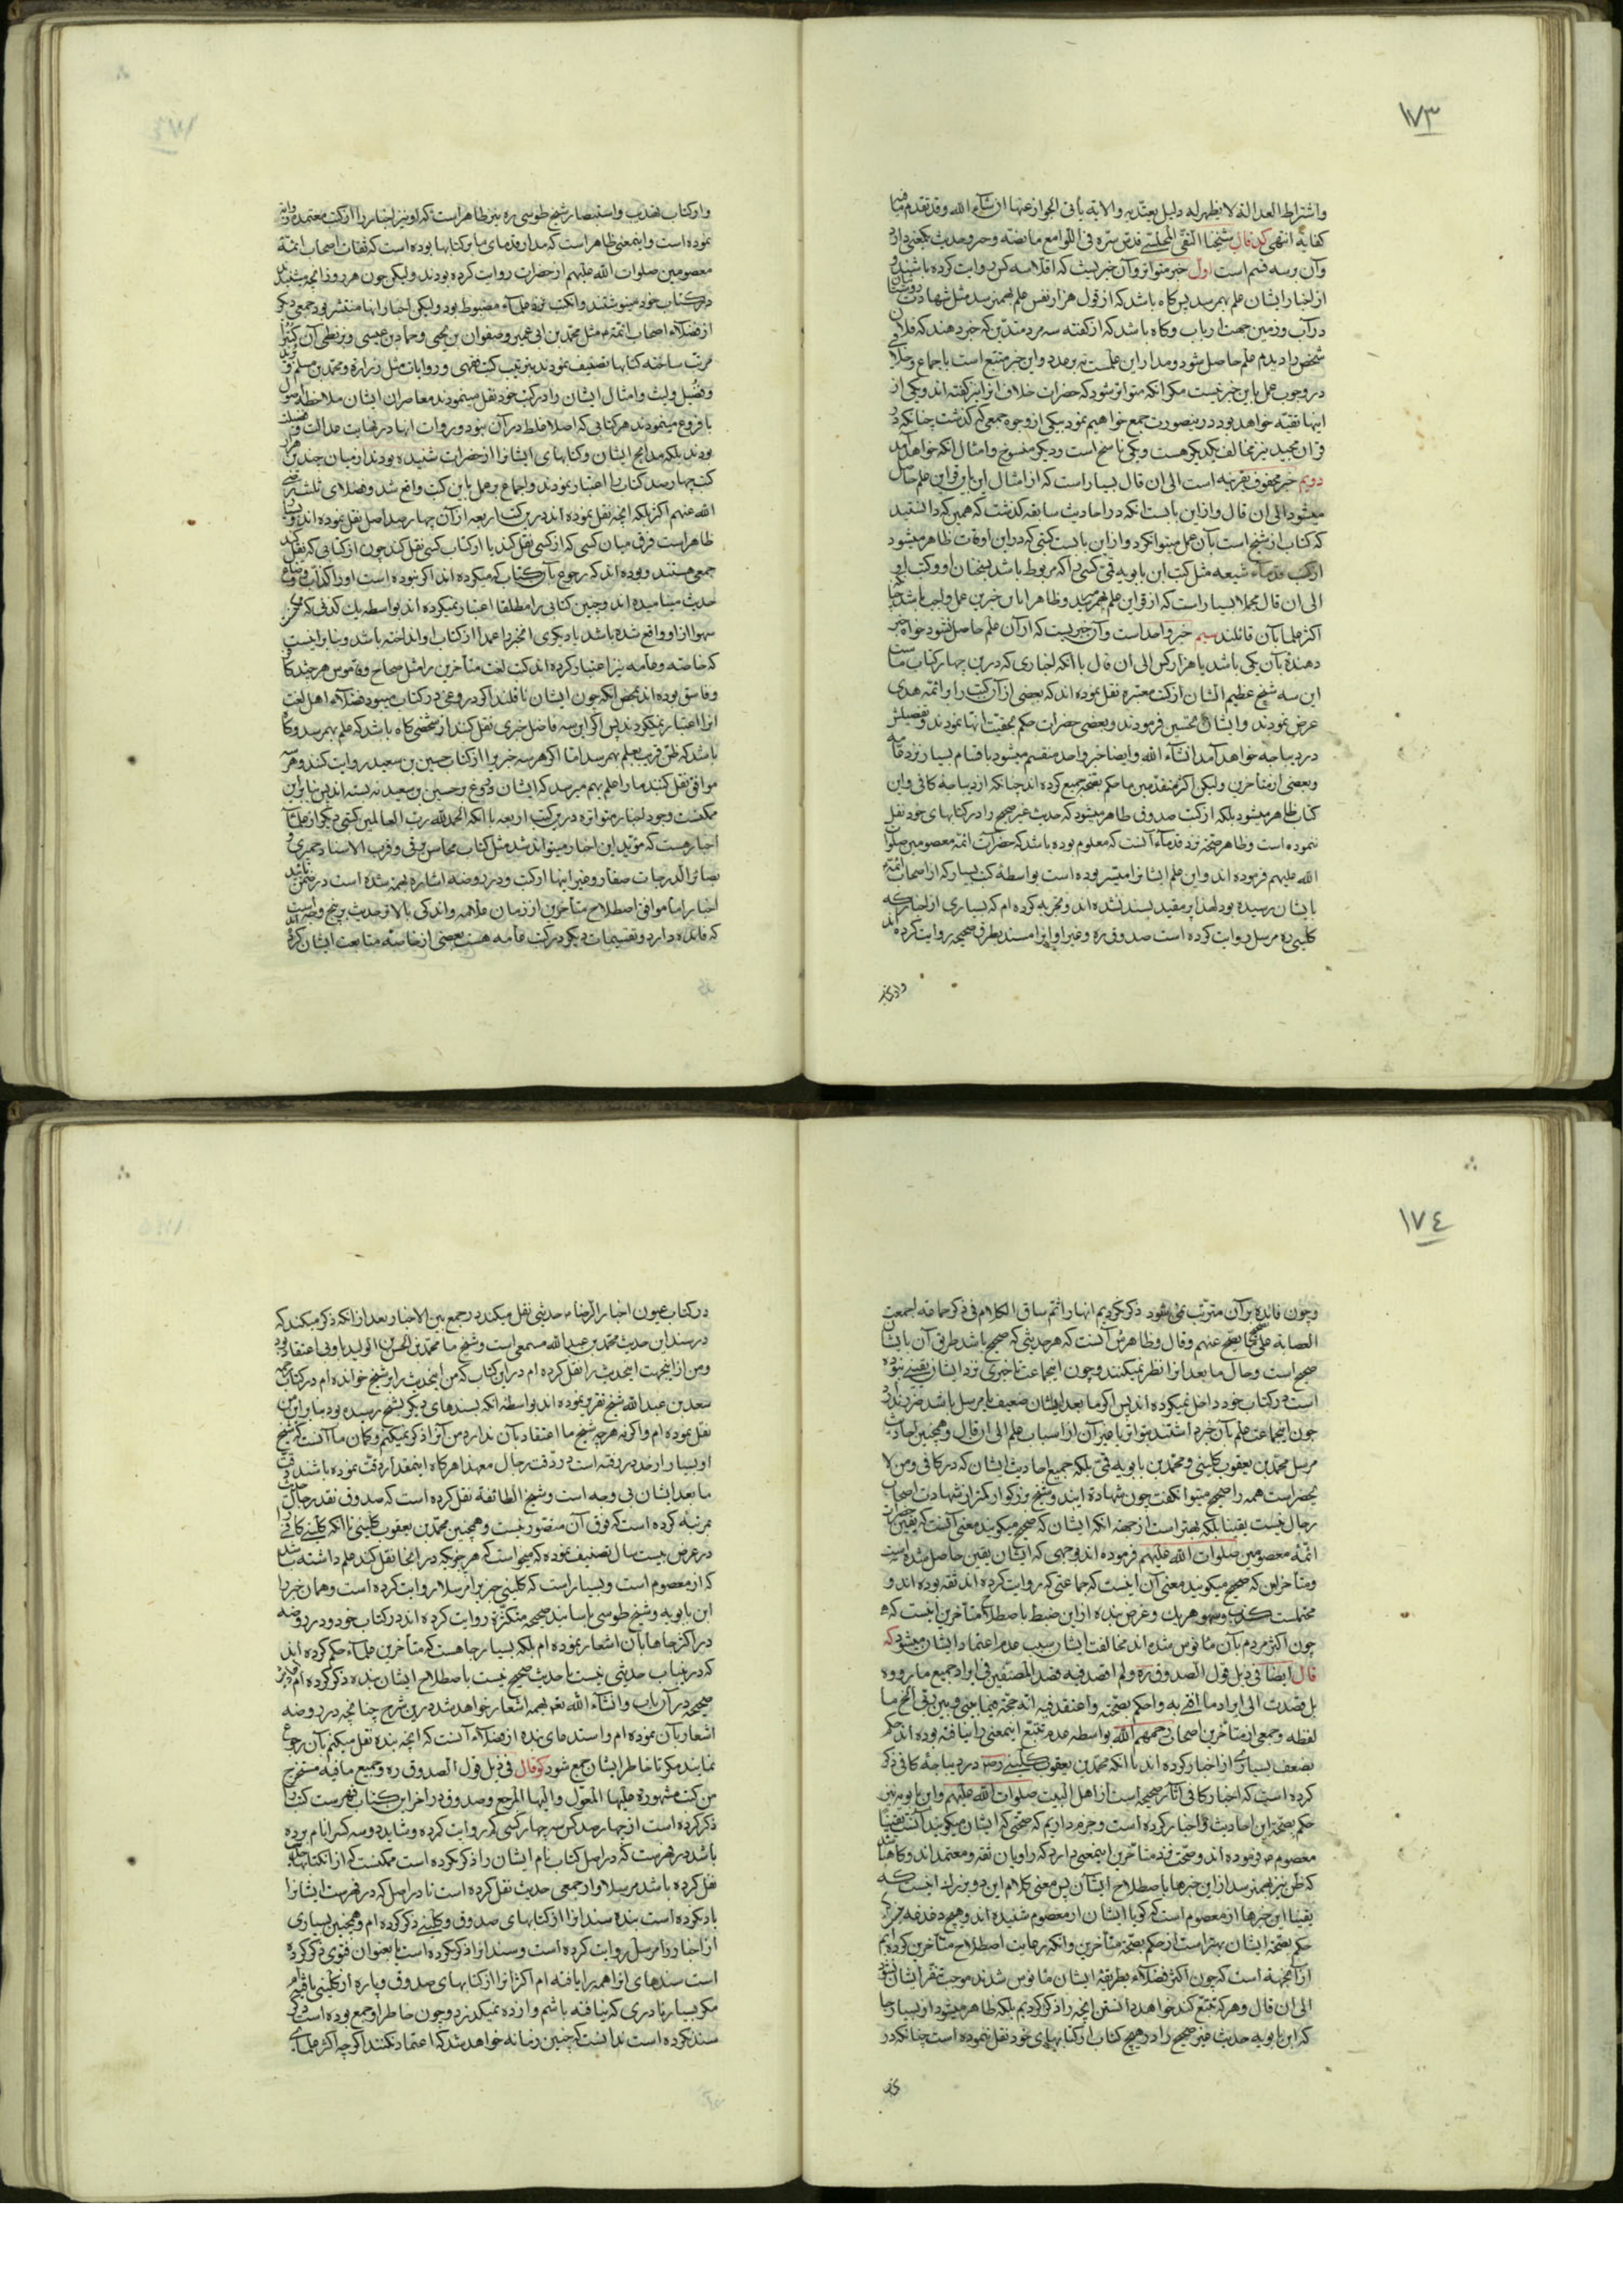 ١٧٣
واشتراط العدالة لا يظهر له دليل يعتد به والاية يأتى الجواز عنها ان شآء الله وقد تقدم ما فيه
كفاية انتهى كد قال شيخنا التقى المجلسى قدس سره فى اللوامع ما نصه وخبر وحديث يكمعنى دارد
وآن بر سه قسم است اول خبر متواتر وآن خبريست كه اقلا سه كس روايت كرده باشند و
از اخبار ايشان علم بهم رسد پس كاه باشد كه از قول هزار نفس علم بهم نرسد مثل شهادت
در آب وزمين جهت ارباب وكاه باشد كه از كفته سه مرد متدين كه خبر دهند كه فلان
شخص را ديدم علم حاصل شود ومدار اين علمست نه بر عدد واين خبر متبع است باجماع وخلافى
در وجوب عمل باين خبر نيست مكر انكه متواتر شود كه حضرات خلاف انرا نيز كفته اند ويكى از
اينها تقيه خواهد بود در ينصورت جمع خواهيم نمود بيكى از وجوه جمعى كه كذشت چنانكه در
قران مجيد نيز مخالف يكديكر هست ويكى ناسخ است وديكر منسوخ وامثال انكه خواهد آمد
دويم خبر محفوف بقرينه است الى ان قال بسيار است كه از امثال اين قراين علم حاصل
ميشود الى ان قال واز اين بابست انكه در احاديث سابقه كذشت كه همين كه دانستيد
كه كتاب از شيخ است بآن عمل ميتوان كرد واز اين بابست كتبى كه در اين اوقات ظاهر ميشود
از كتب قدمآء شيعه مثل كتب ابن بابويه قمى كسى را كه مربوط باشد بسخنان او وكتب او
الى ان قال مجملا بسيار است كه از قراين علم بهم ميرسد وظاهرا باين خبر عمل واجب باشد چنانكه
اكثر علما بآن قائلند سيم خبر واحد است وآن خبريست كه از آن علم حاصل نشود خواه خبر
دهندة بآن يكى باشد يا هزار كس الى ان قال با انكه اخبارى كه در ين چهار كتاب ماست
اين سه شيخ عظيم الشان از كتب معتبره نقل نموده اند كه بعضى از آن كتب را بر ائمه هدى
عرض نمودند وايشان تحسين فرمودند وبعضى حضرات حكم بحقيت انها نمودند وتفصيلش
در ديباجه خواهد آمد انشآء الله وايضا خبر واحد منقسم ميشود باقسام بسيار نزد عامه
وبعضى از متأخرين وليكن اكثر متقدمين ما حكم بصحة جميع كرده اند چنانكه از ديباجة كافى واين
كتاب ظاهر ميشود بلكه از كتب صدوق ظاهر ميشود كه حديث غير صحيح را در كتابهاى خود نقل
ننموده است وظاهر صحة نزد قدمآء آنست كه معلوم بوده باشد كه حضرات ائمة معصومين صلوات
الله عليهم فرموده اند واين علم ايشانرا ميسر بوده است بواسطة كتب بسيار كه از اصحاب ائمه
بايشان رسيده بود لهذا بر مقيد بسند نشده اند وتجربه كرده ام كه بسيارى از اخبار كه
كلينى ره مرسل روايت كرده است صدوق ره وغير او انرا مسند بطرق صحيحه روايت كرده اند
واز كتاب
واز كتاب تهذيب واستبصار شيخ طوسى ره نيز ظاهر است كه او نيز اخبار را از كتب معتمده روايت
نموده است واينمعنى ظاهر است كه مدار قدماى ما بر كتابها بوده است كه ثقات اصحاب ائمة
معصومين صلوات الله عليهم از حضرات روايت كرده بودند وليكن چون هر روز انچه ميشنيدند
در كتاب خود مينوشتند وانكتب نزد علمآء مضبوط بود وليكن اخبار انها منتشر بود جمعى ديكر
از فضلآء اصحاب ائمة ع مثل محمد بن ابى عمير وصفوان بن يحيى وحماد بن عيسى وبزنطى آن كتب را
مرتب ساخته كتابها تصنيف نمودند بترتيب كتب فقهى وروايات مثل زراره ومحمد بن مسلم وبريد
وفضيل وليث وامثال ايشان را در كتب خود نقل مينمودند معاصران ايشان ملاحظه اصول
با فروع مينمودند هر كتابى كه اصلا غلط در آن نبود وروات انها در نهايت عدالت وفضيلت
بودند بلكه مدايح ايشان وكتابهاى ايشانرا از حضرات شنيده بودند از ميان چندين هزار
كتب چهار صد كتاب را اعتبار نمودند واجماع بر عمل باين كتب واقع شد وفضلاى ثلثه رضى
الله عنهم اكثر بلكه انچه نقل نموده اند در ين كتب اربعه از آن چهار صد اصل نقل نموده اند وبسيار
ظاهر است فرق ميان كسى كه از كسى نقل كند يا از كتاب كسى نقل كند چون از كتابى كه نقل كند
جمعى هستند وبوده اند كه رجوع بآن كتاب كه ميكرده اند اكر نبوده است او را كذاب وضاع
حديث ميناميده اند وچنين كتابى را مطلقا اعتبار نميكرده اند بواسطه يك كذبى كه ممكن
سهوا از او واقع شده باشد يا ديكرى انخبر را عمدا از كتاب او انداخته باشد وبنابر اينست
كه خاصه وعامه نيز اعتبار كرده اند كتب لغت متأخرين را مثل صحاح وقاموس هر چند كافر
وفاسق بوده اند بمحض انكه چون ايشان ناقلند اكر دروغى در كتاب ميبود فضلآء اهل لغت
انرا اعتبار نميكردند پس اكر اين سه فاضل خبرى نقل كنند از شخصى كاه باشد كه علم بهم رسد وكاه
باشد كه ظن قريب بعلم بهم رسد اما اكر هر سه خبر را از كتاب حسين بن سعيد روايت كنند وهر سه
موافق نقل كنند ما را علم بهم ميرسد كه ايشان دروغ بر حسين بن سعيد نه بسته اند پس بنابر اين
ممكنست وجود اخبار متواتره در ين كتب اربعه با انكه الحمد لله رب العالمين كتبى ديكر از علمآء
اخبار هست كه مؤيد اين اخبار ميتواند شد مثل كتاب محاسن برقى وقرب الاسناد حميرى و
بصائر الدرجات صفار وغير اينها از كتب ودر روضه اشاره بهمه شده است در ضمن تأييد
اخبار اما موافق اصطلاح متأخرين از زمان علامه واندكى بالاتر حديث بر پنج وجه است
كه فائده دارد وتقسيمات ديكر در كتب عامه هست بعضى از خاصه متابعت ايشان كرده اند
١٧٤
وچون فائده بر آن مترتب نمى شود ذكر نكرديم انها را ثم ساق الكلام فى ذكر جماعه اجمعت
العصابة على تصحيح ما يصح عنهم وقال وظاهرش آنست كه هر حديثى كه صحيح باشد طريق آن بايشان
صحيح است وحال ما بعد انرا نظر نميكنند وچون اينجماعت تا خبرى نزد ايشان يقينى نبوده
است در كتاب خود داخل نميكرده اند پس اكر ما بعد ايشان ضعيف يا مرسل باشد ضرر ندارد
چون اينجماعت علم بآن خبر داشتند بتواتر يا غير آن از اسباب علم الى ان قال وهمچنين احاديث
مرسل محمد بن يعقوب كلينى ومحمد بن بابويه قمى بلكه جميع احاديث ايشان كه در كافى ومن لا
يحضر است همه را صحيح ميتوان كفت چون شهادة ايند وشيخ بزركوار كمتر از شهادت اصحاب
رجال نيست يقينا بلكه بهتر است از جهة انكه ايشان كه صحيح ميكويند معنى آنست كه يقين حضرات
ائمة معصومين صلوات الله عليهم فرموده اند وجهى كه ايشان يقين حاصل شده است
ومتأخران كه صحيح ميكويند معنى آن اينست كه جماعتى كه روايت كرده اند ثقه بوده اند و
محتملست كذب وسهو هر يك وغرض بنده از اين ضبط باصطلاح متأخرين اينست كه
چون اكثر مردم بآن مأنوس شده اند مخالفت ايشان سبب عدم اعتماد ايشان ميشود كه
قال ايضا فى ذيل قول الصدوق ره ولم اقصد فيه قصد المصنفين فى ايراد جميع ما رووه
بل قصدت الى ايراد ما افتى به واحكم بصحته واعتقد فيه انه حجة فيما بينى وبين ربى الخ ما
لفظه وجمعى از متأخرين اصحاب رحمهم الله بواسطه عدم تتبع اينمعنى را نيافته بوده اند حكم
بضعف بسيارى از اخبار كرده اند با انكه محمد بن يعقوب كلينى رض در ديباجة كافى ذكر
كرده است كه اخبار كافى آثار صحيحه است از اهل البيت صلوات الله عليهم وابن بابويه نيز
حكم بصحة اين احاديث واخبار كرده است وجزم داريم كه صحتى كه ايشان ميكويند آنست يقينا
معصوم ع فرموده اند وصحت نزد متأخرين اينمعنى دارد كه راويان ثقه ومعتمد اند وكاه باشد
كه ظن نيز بهم نرسد از اين خبرها باصطلاح ايشان پس معنى كلام اين دو بزرك اينست كه
يقينا اين خبرها از معصوم است كه كويا ايشان از معصوم شنيده اند وهيچ دغدغه
حكم بصحة ايشان بهتر است از حكم بصحة متأخرين وانكه رعايت اصطلاح متأخرين كرده ايم
از آنجهة است كه چون اكثر فضلآء بطريقة ايشان مأنوس شدند موجب تنفر ايشان نشود
الى ان قال وهر كه تتبع كند خواهد دانستن انچه را ذكر كرديم بلكه ظاهر ميشود از بسيار جا
كه ابن بابويه حديث غير صحيح را در هيچ كتاب از كتابهاى خود نقل ننموده است چنانكه در
در كتاب عيون اخبار الرضا ع حديثى نقل ميكند در جمع بين الاخبار بعد از انكه ذكر ميكند كه
در سند اين حديث محمد بن عبد الله مسمعى است وشيخ ما محمد بن الحسن بن الوليد باو بى اعتقاد بود
ومن از اينجهت اينحديث را نقل كرده ام در اين كتاب كه من اينحديث را بر شيخ خوانده ام در كتاب رحمه
سعد بن عبد الله شيخ تقرير نموده اند بواسطه انكه بسندهاى ديكر بشيخ رسيده بود بنابر اين من
نقل نموده ام واكر نه هر چه شيخ ما اعتقاد بآن ندارد من آنرا ذكر نميكنم وكمان ما آنست كه شيخ
او بسيار از حد در رفته است در دقت رجال معهذا هركاه اينمقدار دقت نموده باشند دقت
ما بعد ايشان بى وجه است وشيخ الطائفة نقل كرده است كه صدوق نقد رجال حديث را
بمرتبه كرده است كه فوق آن متصور نيست وهمچنين محمد بن يعقوب كلينى تا انكه كلينى كافى را
در عرض بيست سال تصنيف نموده كه ميخواست كه هر خبرى كه در انجا نقل كند علم داشته باشد
كه از معصوم است وبسيار است كه كلينى خبر را مرسلا روايت كرده است وهمان خبر را
ابن بابويه وشيخ طوسى باسانيد صحيحه متكثره روايت كرده اند در كتاب خود ودر روضه
در اكثر جاها بآن اشعار نموده ام بلكه بسيار جاهست كه متأخرين علمآء حكم كرده اند
كه در ينباب حديثى نيست يا حديث صحيح نيست باصطلاح ايشان بنده ذكر كرده ام
صحيحه در آن باب وانشآء الله تعه بهمه اشعار خواهد شد در ين شرح چنانچه در روضه
اشعار بآن نموده ام واستدعاى بنده از فضلآء آنست كه انچه بنده نقل ميكنم بآن رجوع
نمايند مكر تا خاطر ايشان جمع شود كو قال فى ذيل قول الصدوق ره وجميع ما فيه مستخرج
من كتب مشهوره عليها المعول واليها المرجع وصدوق در اخر اين كتاب فهرست كتب را
ذكر كرده است از چهار صد كس سه چهار كسى كه روايت كرده وشايد دو سه كس را نام برده
باشد در فهرست كه در اصل كتاب نام ايشان را ذكر نكرده است ممكنست كه از انكتابها
نقل كرده باشد مرسلا واز جمعى حديث نقل كرده است نادرا اصل كه در فهرست ايشانرا
ياد نكرده است بنده سند انرا از كتابهاى صدوق وكلينى ذكر كرده ام وهمچنين بسيارى
از اخبار را مرسل روايت كرده است وسند انرا ذكر نكرده است يا بعنوان فتوى ذكر كرده
است سندهاى انرا همه را يافته ام اكثر انرا از كتابهاى صدوق وپاره از كلينى يافتم
مكر بسيار نادرى كه نيافته باشم واز ده نميكذرد وچون خاطر او جمع بوده است ذكر
سند نكرده است ندانست كه چنين زمانه خواهد شد كه اعتماد نكنند اكر چه اكثر علماى